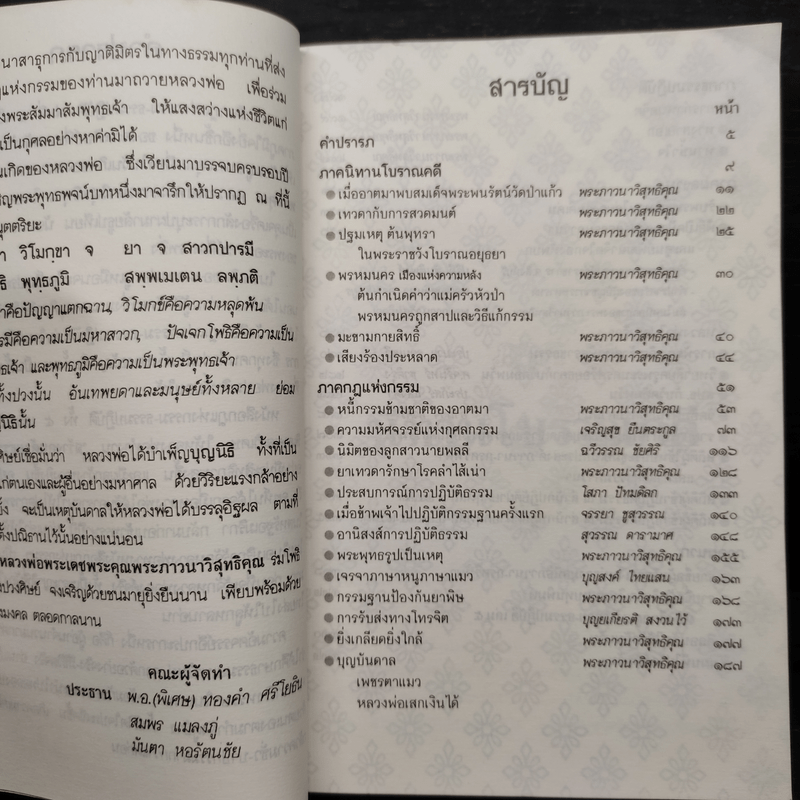 นาสาธุการกับญาติมิตรในทางธรรมทุกท่านที่ส่ง
แห่งกรรมของท่านมาถวายหลวงพ่อ เพื่อร่วม
งพระสัมมาสัมพุทธเจ้า ให้แสงสว่างแห่งชีวิตแก่
เป็นกุศลอย่างหาค่ามิได้
นเกิดของหลวงพ่อ ซึ่งเวียนมาบรรจบครบรอบปี
ชิญพระพุทธพจน์บทหนึ่งมาจารึกให้ปรากฏ ณ ที่นี้
นุตตริยะ
า วิโมกฺขา จ ยา จ สาวกปารมี
ธิ พุทฺธภูมิ สพฺพเมเตน ลพฺภติ
าคือปัญญาแตกฉาน, วิโมกข์คือความหลุดพ้น
รมีคือความเป็นมหาสาวก, ปัจเจกโพธิคือความเป็น
ทธเจ้า และพุทธภูมิคือความเป็นพระพุทธเจ้า
ทั้งปวงนั้น อันเทพยดาและมนุษย์ทั้งหลาย ย่อม
ญนิธินั้น
ศิษย์เชื่อมั่นว่า หลวงพ่อได้บำเพ็ญบุญนิธิ ทั้งที่เป็น
แก่ตนเองและผู้อื่นอย่างมหาศาล ด้วยวิริยะแรงกล้าอย่าง
ยิ่ง จะเป็นเหตุบันดาลให้หลวงพ่อได้บรรลุอิฐผล ตามที่
ตั้งปณิธานไว้นั้นอย่างแน่นอน
หลวงพ่อพระเดชพระคุณพระภาวนาวิสุทธิคุณ ร่มโพธิ์
งปวงศิษย์ จงเจริญด้วยชนมายุยิ่งยืนนาน เพียบพร้อมด้วย
มงคล ตลอดกาลนาน
คณะผู้จัดทำ
ประธาน พ.อ.(พิเศษ) ทองคำ ศรีโยธิน
สมพร แมลงภู่
มันตา หอรัตนชัย
สารบัญ
หน้า
คำปรารภ ๕
ภาคนิทานโบราณคดี ๙
เมื่ออาตมาพบสมเด็จพระพนรัตน์วัดป่าแก้ว พระภาวนาวิสุทธิคุณ ๑๑
เทวดากับการสวดมนต์ พระภาวนาวิสุทธิคุณ ๒๒
ปฐมเหตุ ต้นพุทรา พระภาวนาวิสุทธิคุณ ๒๕
ในพระราชวังโบราณอยุธยา
พรหมนคร เมืองแห่งความหลัง พระภาวนาวิสุทธิคุณ ๓๐
ต้นกำเนิดคำว่าแม่ครัวหัวป่า
พรหมนครถูกสาปและวิธีแก้กรรม
มะขามกายสิทธิ์ พระภาวนาวิสุทธิคุณ ๔๐
เสียงร้องประหลาด พระภาวนาวิสุทธิคุณ ๔๔
ภาคกฎแห่งกรรม ๕๑
หนี้กรรมข้ามชาติของอาตมา พระภาวนาวิสุทธิคุณ ๕๓
ความมหัศจรรย์แห่งกุศลกรรม เจริญสุข ยืนตระกูล ๗๓
นิมิตของลูกสาวนายพลลี ฉวีวรรณ ชัยศิริ ๑๑๖
ยาเทวดารักษาโรคลำไส้เน่า พระภาวนาวิสุทธิคุณ ๑๒๘
ประสบการณ์การปฏิบัติธรรม โสภา ปัทมดิลก ๑๓๓
เมื่อข้าพเจ้าไปปฏิบัติกรรมฐานครั้งแรก จรรยา ชูสุวรรณ ๑๔๐
อานิสงส์การปฏิบัติธรรม สุวรรณ ดารามาศ ๑๔๘
พระพุทธรูปเป็นเหตุ พระภาวนาวิสุทธิคุณ ๑๕๕
เจรจาภาษาหนูภาษาแมว บุญสงค์ ไทยแสน ๑๖๓
กรรมฐานป้องกันยาพิษ พระภาวนาวิสุทธิคุณ ๑๖๘
การรับส่งทางโทรจิต บุญยเกียรติ สงวนไว้ ๑๗๓
ยิ่งเกลียดยิ่งใกล้ พระภาวนาวิสุทธิคุณ ๑๗๗
บุญบันดาล พระภาวนาวิสุทธิคุณ ๑๘๗
เพชรตาแมว
หลวงพ่อเสกเงินได้